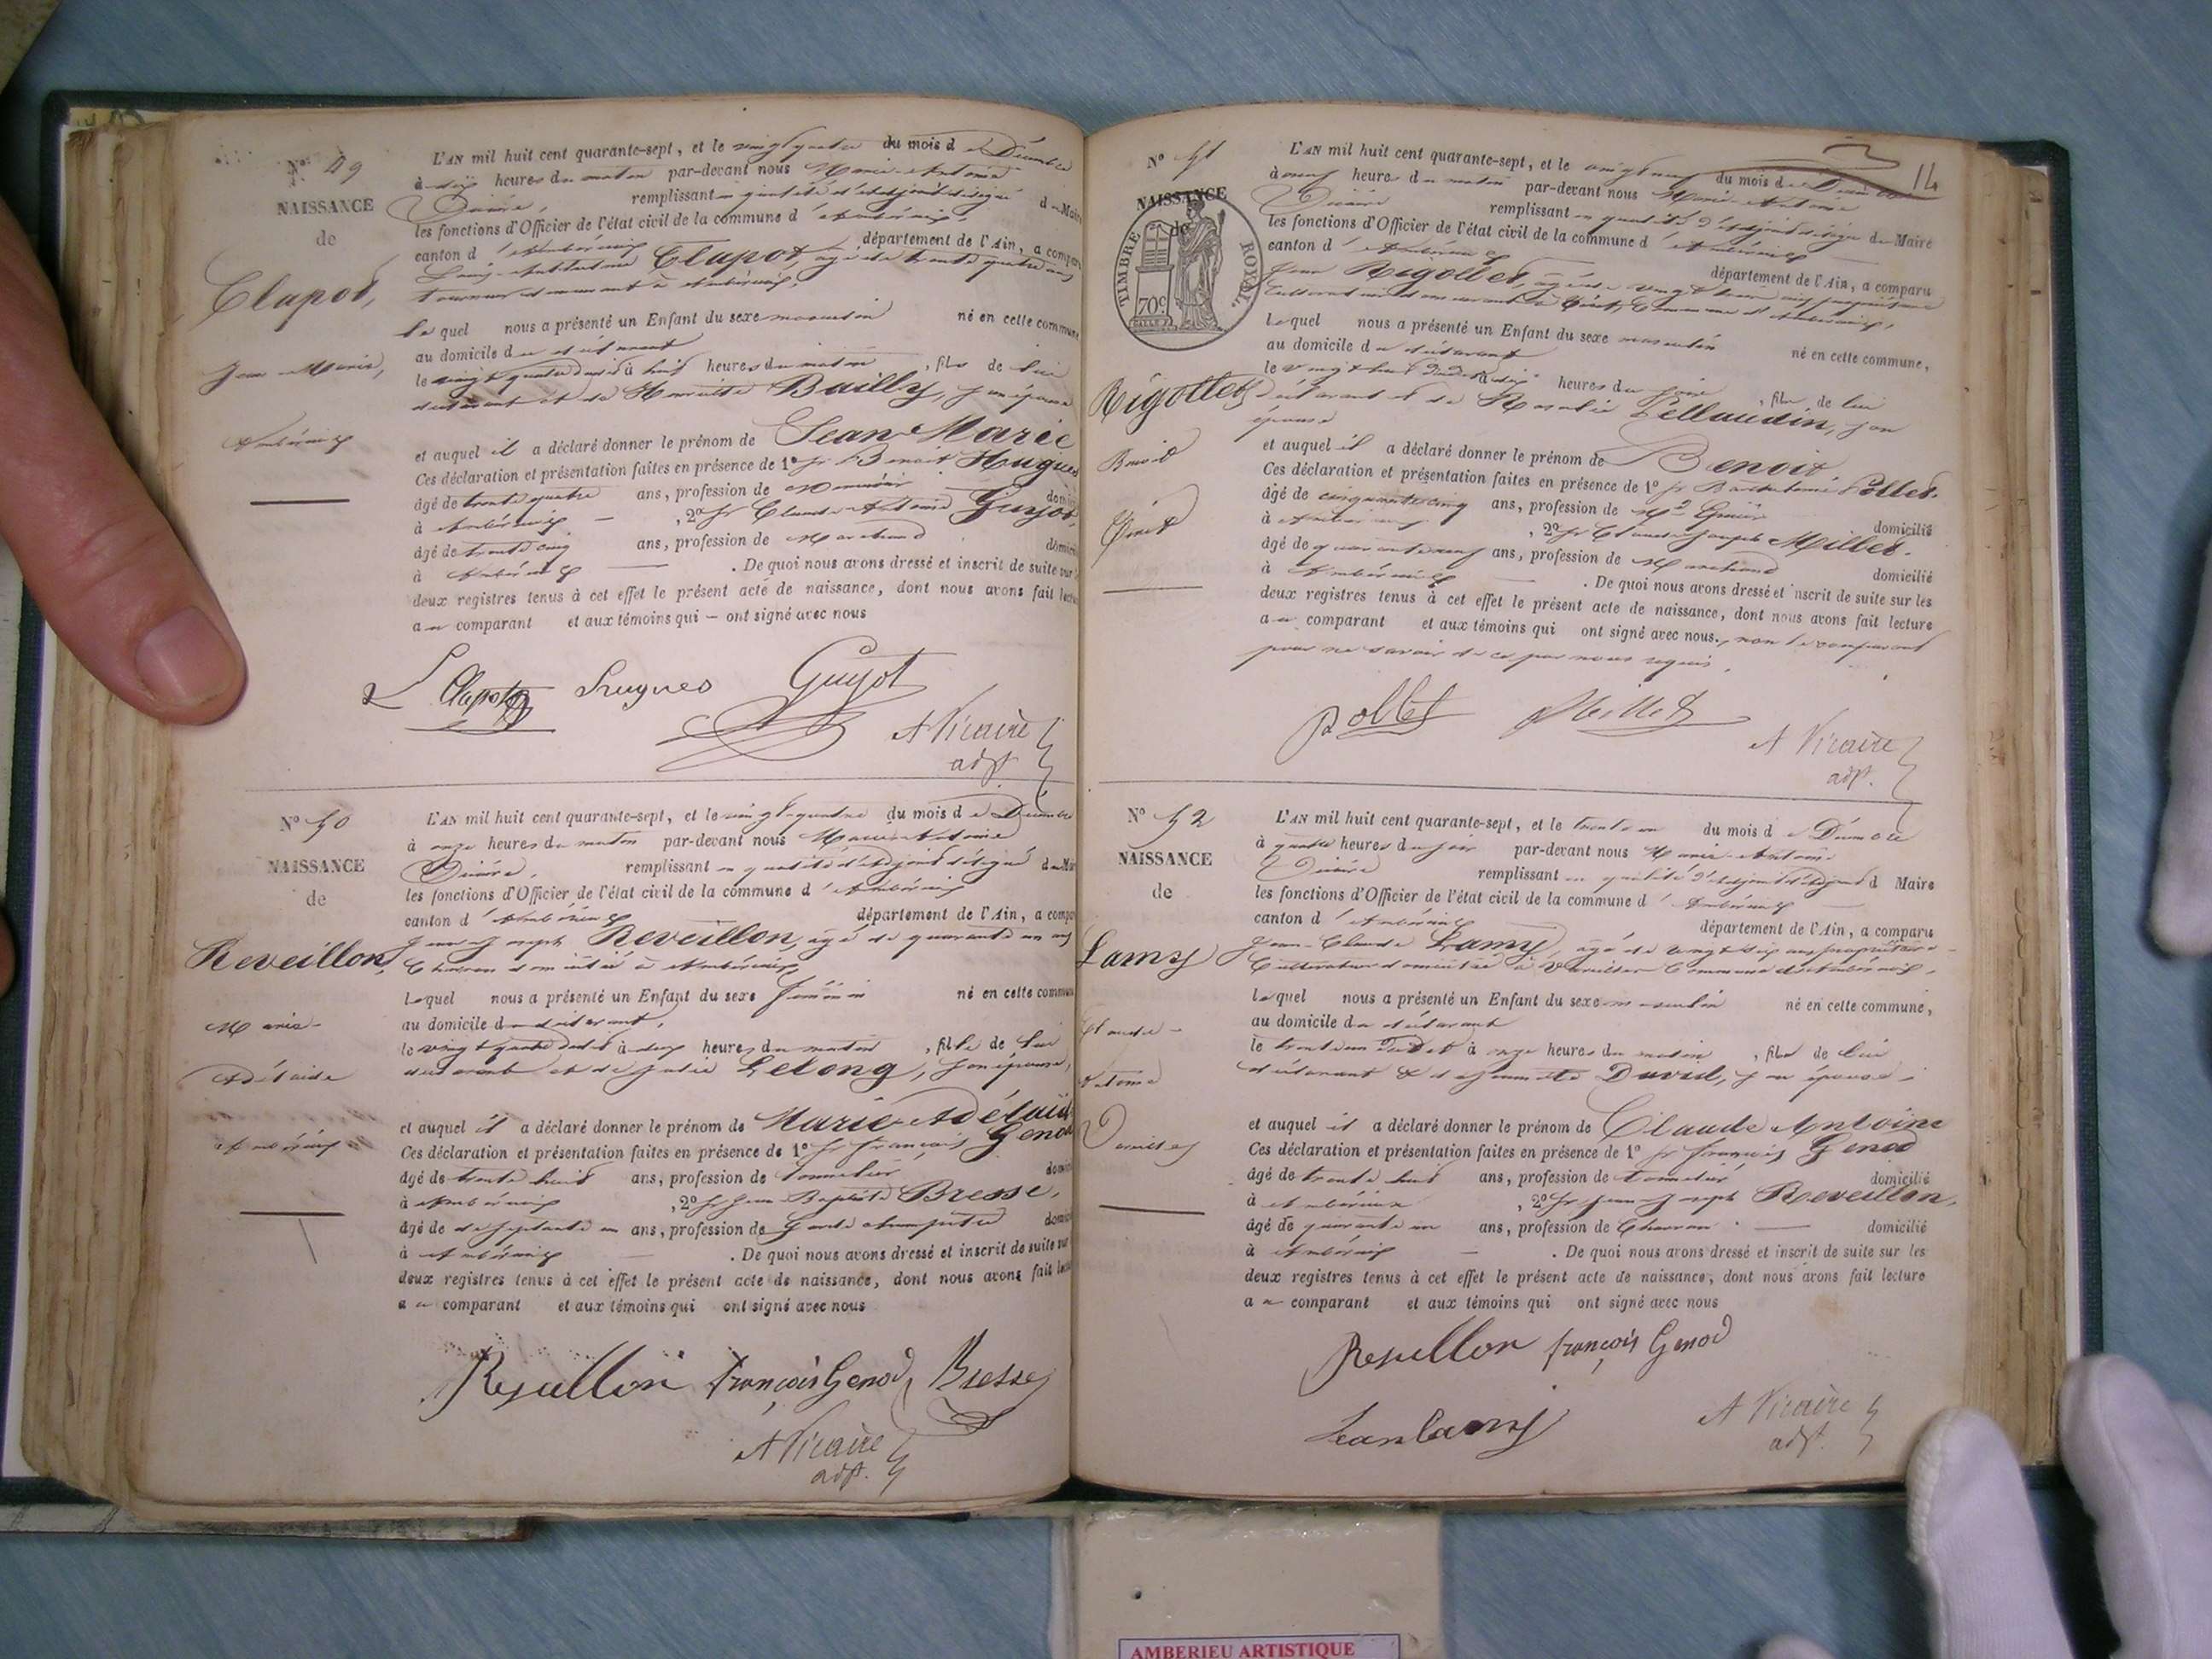 Nº 49
NAISSANCE
de
Clapot,
Jean Marie,
Ambérieux
L'AN mil huit cent quarante-sept, et le vingt quatre du mois de Décembre
à dix heures du matin par-devant nous Marie-Antoine
remplissant en qualité d'adjoint délégué du Maire
les fonctions d'Officier de l'état civil de la commune d'Ambérieux
canton d'Ambérieux département de l'Ain, a comparu
Clapot, âgé de trente quatre ans
demeurant à Ambérieux,
lequel nous a présenté un Enfant du sexe masculin né en cette commune
au domicile du déclarant
le vingt quatre dudit à huit heures du matin, fils de lui
déclarant et de Henriette Bailly, son épouse
et auquel il a déclaré donner le prénom de Jean Marie
Ces déclaration et présentation faites en présence de 1º Sr Benoit Hugues
âgé de trente quatre ans, profession de Menuisier
à Ambérieux, 2º Sr Claude Antoine Guyot,
âgé de trente cinq ans, profession de Marchand
à Ambérieux. De quoi nous avons dressé et inscrit de suite sur
deux registres tenus à cet effet le présent acte de naissance, dont nous avons fait lecture
au comparant et aux témoins qui ont signé avec nous
L Clapot Hugues Guyot
A Vicaire
adjt.
Nº 50
NAISSANCE
de
Reveillon,
Marie-
Adélaide
Ambérieux
L'AN mil huit cent quarante-sept, et le vingt-quatre du mois de Décembre
à onze heures du matin par-devant nous Marie-Antoine
remplissant en qualité d'adjoint délégué du Maire
les fonctions d'Officier de l'état civil de la commune d'Ambérieux
canton d'Ambérieux département de l'Ain, a comparu
Jean Joseph Reveillon, âgé de quarante un ans
Charron domicilié à Ambérieux,
lequel nous a présenté un Enfant du sexe féminin né en cette commune
au domicile du déclarant,
le vingt quatre dudit à deux heures du matin, fille de lui
déclarant et de Julie Lelong, son épouse,
et auquel il a déclaré donner le prénom de Marie Adélaïde
Ces déclaration et présentation faites en présence de 1º Sr François Genod
âgé de trente huit ans, profession de tonnelier
à Ambérieux, 2º Sr Jean Baptiste Bresse,
âgé de soixante un ans, profession de Garde champêtre
à Ambérieux. De quoi nous avons dressé et inscrit de suite sur
deux registres tenus à cet effet le présent acte de naissance, dont nous avons fait lecture
au comparant et aux témoins qui ont signé avec nous
Reveillon françois Genod Bresse
A Vicaire
adjt.
14
Nº 51
NAISSANCE
de
TIMBRE ROYAL.
70c
Rigollet
Benoit
L'AN mil huit cent quarante-sept, et le vingt neuf du mois de Décembre
à neuf heures du matin par-devant nous Marie-Antoine
remplissant en qualité d'adjoint délégué du Maire
les fonctions d'Officier de l'état civil de la commune d'Ambérieux
canton d'Ambérieux département de l'Ain, a comparu
Jean Rigollet, âgé de vingt ans propriétaire
Cultivateur demeurant à commune d'Ambérieux,
lequel nous a présenté un Enfant du sexe masculin né en cette commune,
au domicile du déclarant
le vingt huit dudit à dix heures du soir, fils de lui
déclarant et de Rosalie Pellaudin, son
épouse
et auquel il a déclaré donner le prénom de Benoit
Ces déclaration et présentation faites en présence de 1º Sr Barthelemi Pollet.
âgé de cinquante cinq ans, profession de Md Epicier domicilié
à Ambérieux, 2º Sr Claude Joseph Millet.
âgé de quarante neuf ans, profession de Marchand domicilié
à Ambérieux. De quoi nous avons dressé et inscrit de suite sur les
deux registres tenus à cet effet le présent acte de naissance, dont nous avons fait lecture
au comparant et aux témoins qui ont signé avec nous., non le comparant
pour ne savoir de ce par nous requis.
Pollet Millet
A Vicaire
adjt.
Nº 52
NAISSANCE
de
Lamy
Claude-
Antoine
L'AN mil huit cent quarante-sept, et le trente un du mois de Décembre
à quatre heures du soir par-devant nous Marie-Antoine
remplissant en qualité d'adjoint délégué d Maire
les fonctions d'Officier de l'état civil de la commune d'Ambérieux
canton d'Ambérieux département de l'Ain, a comparu
Jean-Claude Lamy, âgé de vingt six ans propriétaire
Cultivateur domicilié à Vareilles Commune d'Ambérieux,
lequel nous a présenté un Enfant du sexe masculin né en cette commune,
au domicile du déclarant
le trente un dudit à onze heures du matin, fils de lui
déclarant & de Jeannette David, son épouse
et auquel il a déclaré donner le prénom de Claude Antoine
Ces déclaration et présentation faites en présence de 1º Sr françois Genod
âgé de trente huit ans, profession de tonnelier domicilié
à Ambérieux, 2º Sr Jean-Joseph Reveillon,
âgé de quarante un ans, profession de Charron domicilié
à Ambérieux. De quoi nous avons dressé et inscrit de suite sur les
deux registres tenus à cet effet le présent acte de naissance, dont nous avons fait lecture
au comparant et aux témoins qui ont signé avec nous
Reveillon françois Genod
Jean Lamy
A Vicaire
adjt.
AMBERIEU ARTISTIQUE